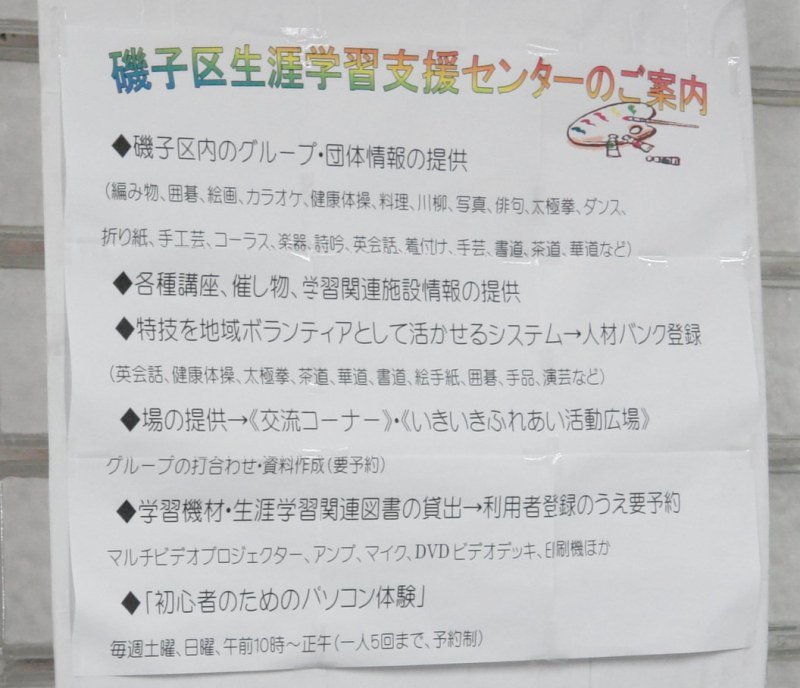 磯子区生涯学習支援センターのご案内
◆磯子区内のグループ・団体情報の提供
（編み物、囲碁、絵画、カラオケ、健康体操、料理、川柳、写真、俳句、太極拳、ダンス、
折り紙、手工芸、コーラス、楽器、詩吟、英会話、着付け、手芸、書道、茶道、華道など）
◆各種講座、催し物、学習関連施設情報の提供
◆特技を地域ボランティアとして活かせるシステム→人材バンク登録
（英会話、健康体操、太極拳、茶道、華道、書道、絵手紙、囲碁、手品、演芸など）
◆場の提供→《交流コーナー》・《いきいきふれあい活動広場》
グループの打合わせ・資料作成（要予約）
◆学習機材・生涯学習関連図書の貸出→利用者登録のうえ要予約
マルチビデオプロジェクター、アンプ、マイク、DVDビデオデッキ、印刷機ほか
◆「初心者のためのパソコン体験」
毎週土曜、日曜、午前10時～正午（一人5回まで、予約制）